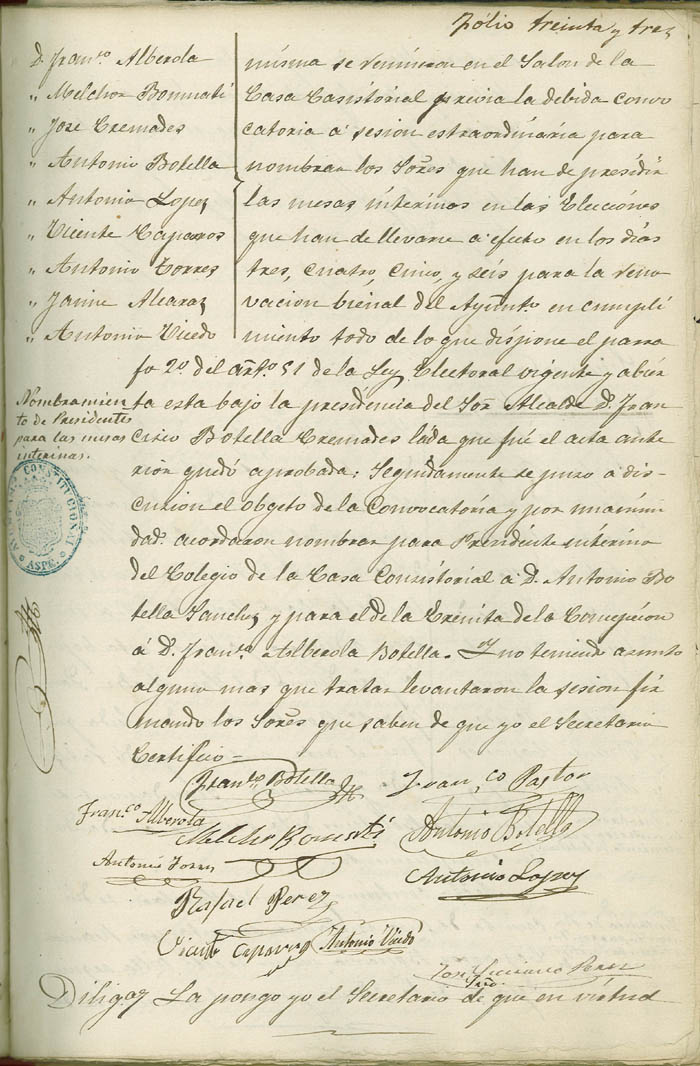 Fólio treinta y tres
D. Fran.co Alberola
" Melchor Bonmatí
" Jose Cremades
" Antonio Botella
" Antonio Lopez
" Vicente Caparros
" Antonio Torres
" Jaime Alcaraz
" Antonio Vicedo
misma se reunieron en el Salon de la
Casa Casistorial previa la debida convo
catoria á sesion estraordinaria para
nombrar los Sores que han de presidir
las mesas interinas en las Elecciones
que han de llevarse a efecto en los dias
tres, cuatro, cinco, y seis para la reno
vacion bienal del Ayunto. en cumpli
miento todo de lo que dispone el parra
fo 2º del artº 51 de la Ley Electoral vigente y abier
ta esta bajo la presidencia del Sor Alcalde D. Fran
cisco Botella Cremades leida que fué el acta ante
rior quedó aprobada: Seguidamente se puso a dis-
cusion el obgeto de la Convocatória y por unanimi
dad acordaron nombrar para Presidente interino
del Colegio de la Casa Consistorial á D. Antonio Bo
tella Sanchez y para el de la Ermita de la Concepcion
á D. Fran.co Alberola Botella. Y no teniendo asunto
alguno mas que tratar levantaron la sesion fir
mando los Sores que saben de que yo el Secretario
Certifico=
Nombramien
to de Presidentes
para las mesas
interinas.
CONSTITUCIONAL
ASPE.
Fran.co Botella
Fran.co Pastor
Fran.co Alberola
Melchor Bonmatí
Antonio Botella
Antonio Torres
Antonio Lopez
Rafael Perez
Vicente Caparros
Antonio Vicedo
José Luciano Perez
Srio.
Diligª La pongo yo el Secretario de que en virtud